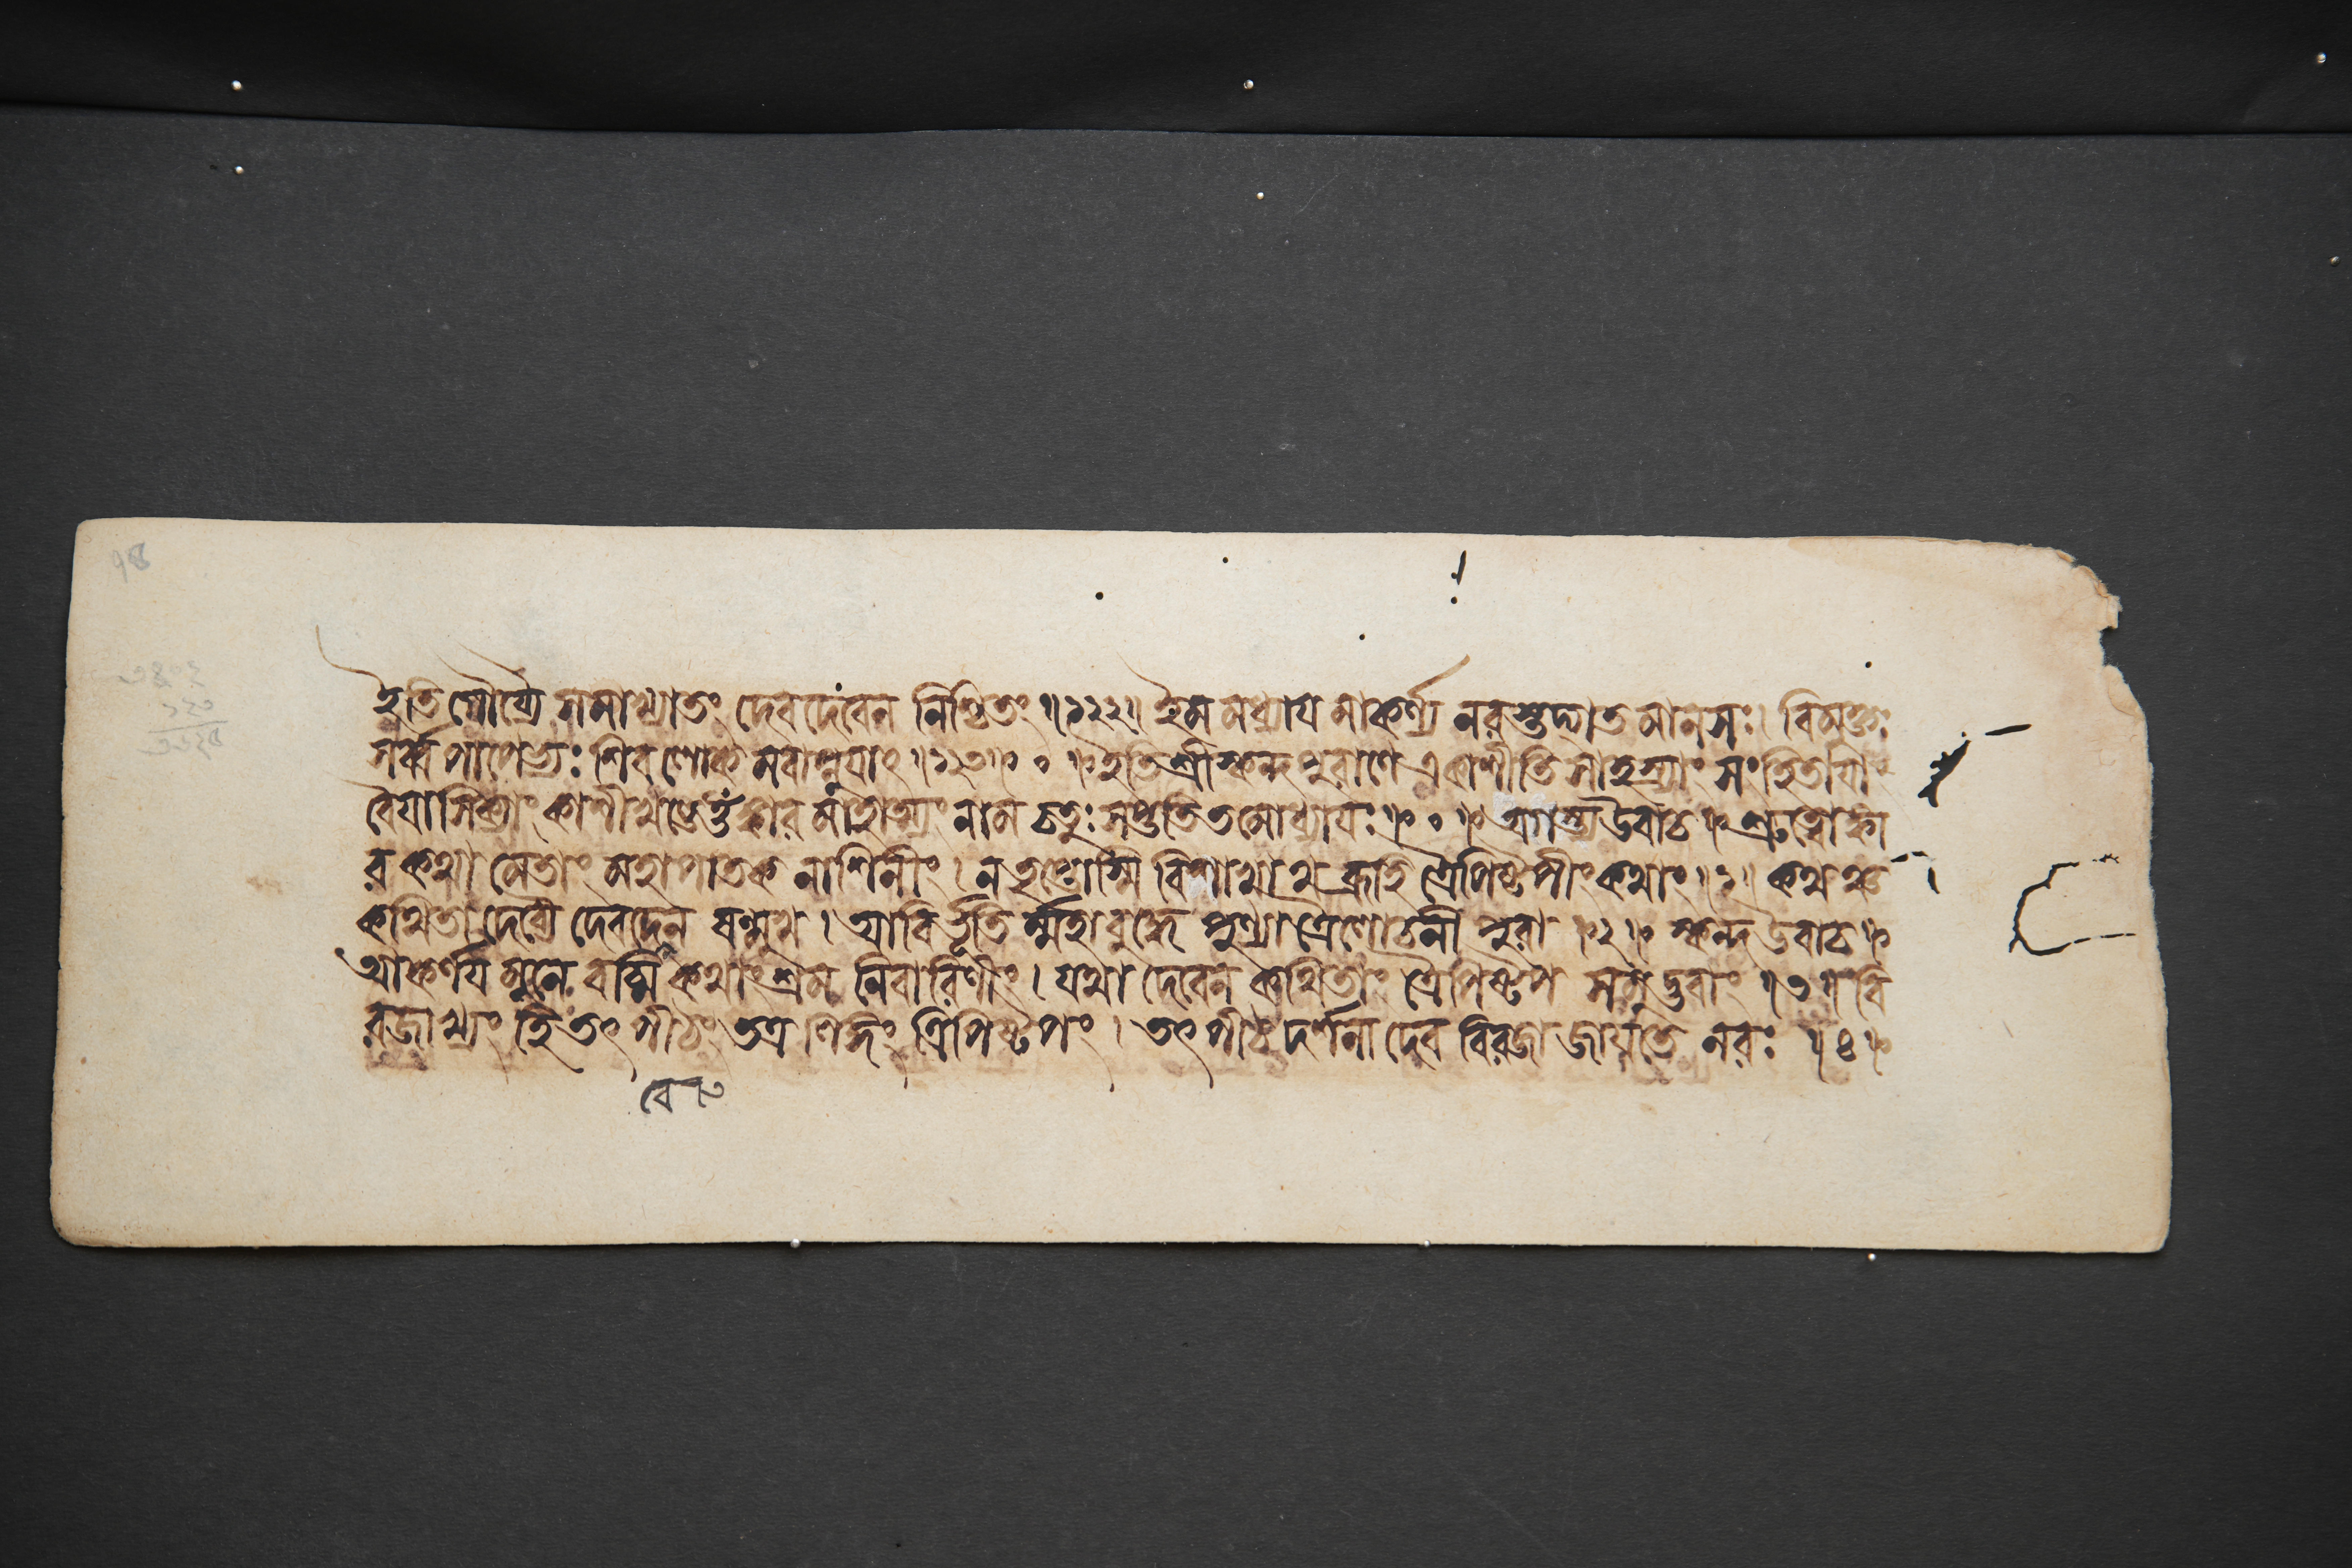 ৭৪
ইতি গৌর্য্যৈ সমাখ্যাতং দেবদেবেন নিশ্চিতং ॥১২২॥ ইম মধ্যায মাকর্ণ্য নরস্তদ্গত মানসঃ। বিমুক্তঃ
সর্ব্ব পাপেভ্যঃ শিব লোক মবাপ্নুযাৎ ॥১২৩॥ ० ॥ ইতি শ্রীস্কন্দপুরাণে একাশীতি সাহস্র্যাং সংহিতাযাং
বৈযাসিক্যাং কাশীখণ্ডে ওঁঙ্কার মাহাত্ম্যং নাম চতুঃসপ্ততিতমোধ্যাযঃ ॥ ० ॥ অগস্ত্য উবাচ ॥ শ্রুত্বোঙ্কা
র কথা মেতাং মহাপাতক নাশিনীং। ন তৃপ্তোস্মি বিশাখাথ ব্রূহি ত্রৈপিষ্টপীং কথাং ॥১॥ কথঞ্চ
কথিতা দেব্যৈ দেবদেবেন ষণ্মুখ। আবির্ভূতি র্ম্মহাবুদ্ধে পুণ্যা ত্রৈলোচনী পুরা ॥২॥ স্কন্দ উবাচ ॥
আকর্ণয মুনে বচ্মি কথাং শ্রম নিবারিণীং। যথা দেবেন কথিতাং ত্রৈপিষ্টপ সমুদ্ভবাং ॥৩॥ বি
রজাখ্যং হি তৎ পীঠং তত্র লিঙ্গং ত্রিপিষ্টপং। তৎ পীঠ দর্শনা দেব বিরজা জাযতে নরঃ ॥৪॥